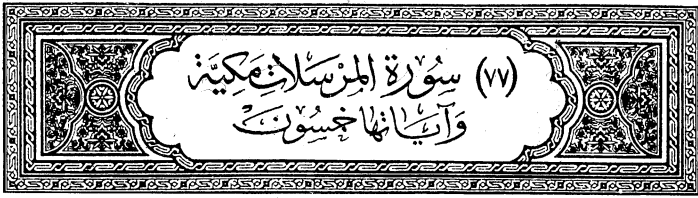 (٧٧) سُورَةُ المُرْسَلَاتِ مَكِيَّة
وَآيَاتهَا خَمْسُونَ